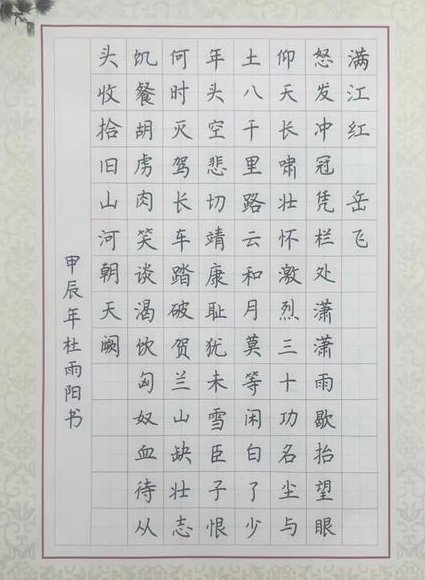 满江红 岳飞
怒发冲冠凭栏处潇潇雨歇抬望眼
仰天长啸壮怀激烈三十功名尘与
土八千里路云和月莫等闲白了少
年头空悲切靖康耻犹未雪臣子恨
何时灭驾长车踏破贺兰山缺壮志
饥餐胡虏肉笑谈渴饮匈奴血待从
头收拾旧山河朝天阙
甲辰年杜雨阳书